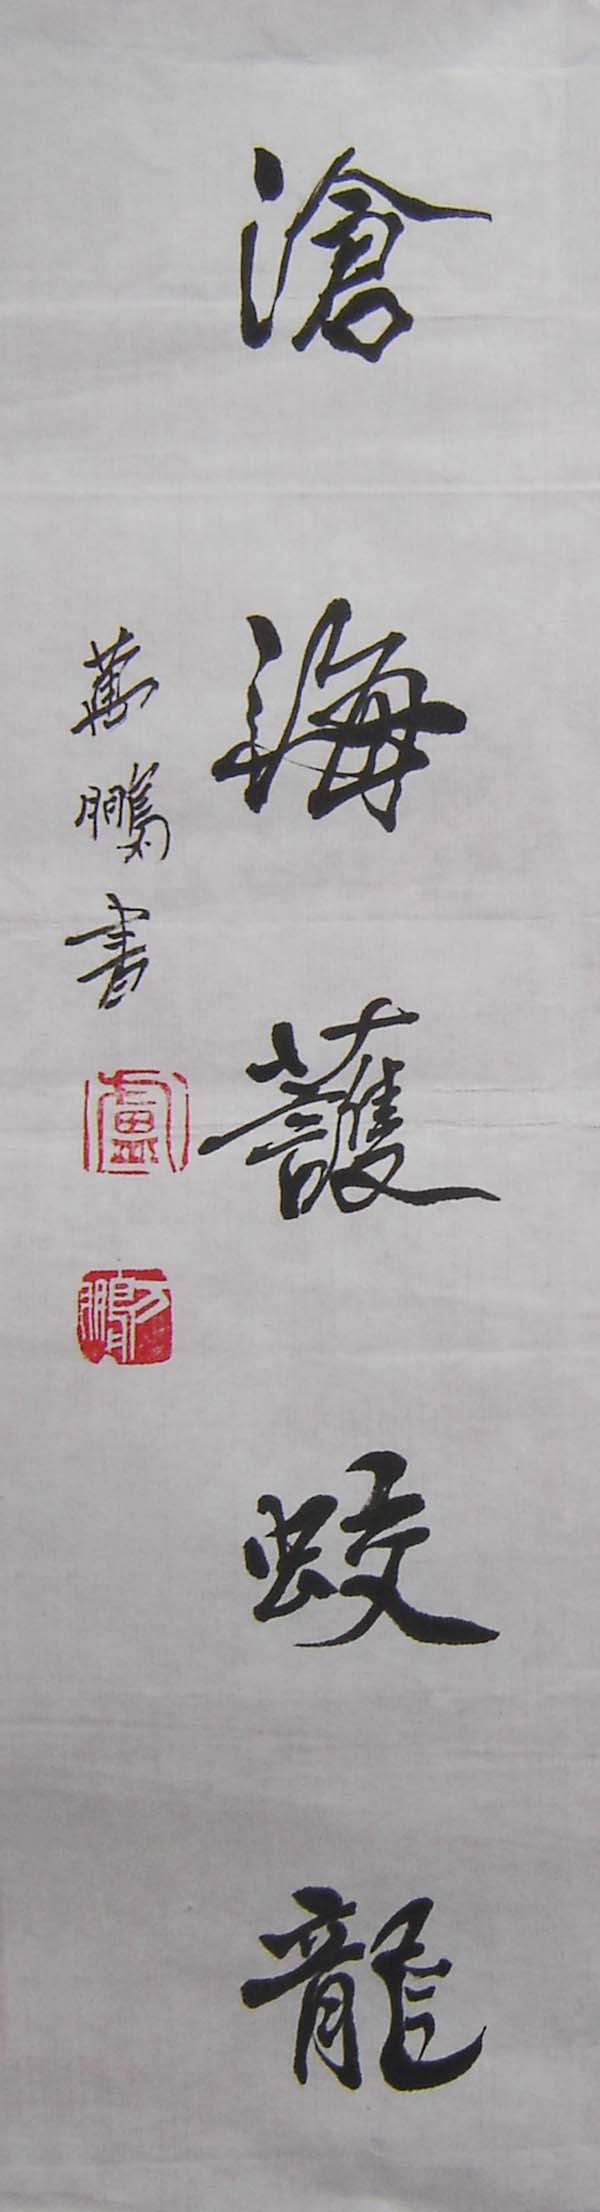 滄海護蛟龍
萬鵬書
盧
万鵬